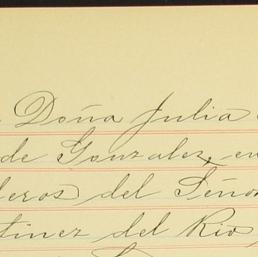 Doña Julia
de Gonzalez, en
deros del Seño
tinez del Rio,